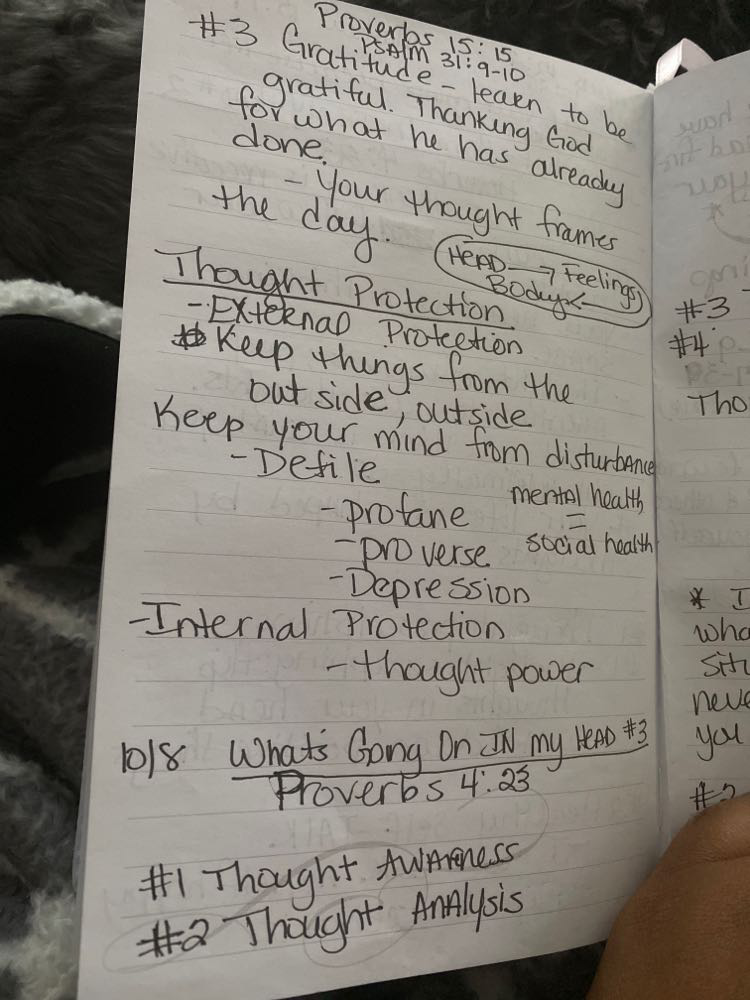 Proverbs 15:15
PSAlM 31:9-10
#3 Gratitude - learn to be
gratiful. Thanking God
for what he has already
done.
- Your thought frames
the day.
HEAD → Feelings
Body ←
Thought Protection
- External Protection
Keep things from the
out side, outside
Keep your mind from disturbance
- Defile
mental health
=
social health
- profane
- proverse
- Depression
- Internal Protection
- thought power
10/8 What's Gong On IN my HEAD #3
Proverbs 4:23
#1 Thought AWAreness
#2 Thought AnAlysis
#3
#4
Tho
* I
wha
situ
neve
you
#2